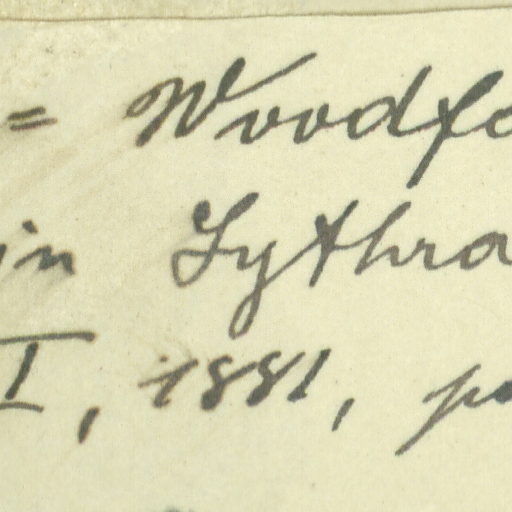 = Woodfo
in Lythra
I, 1881, p